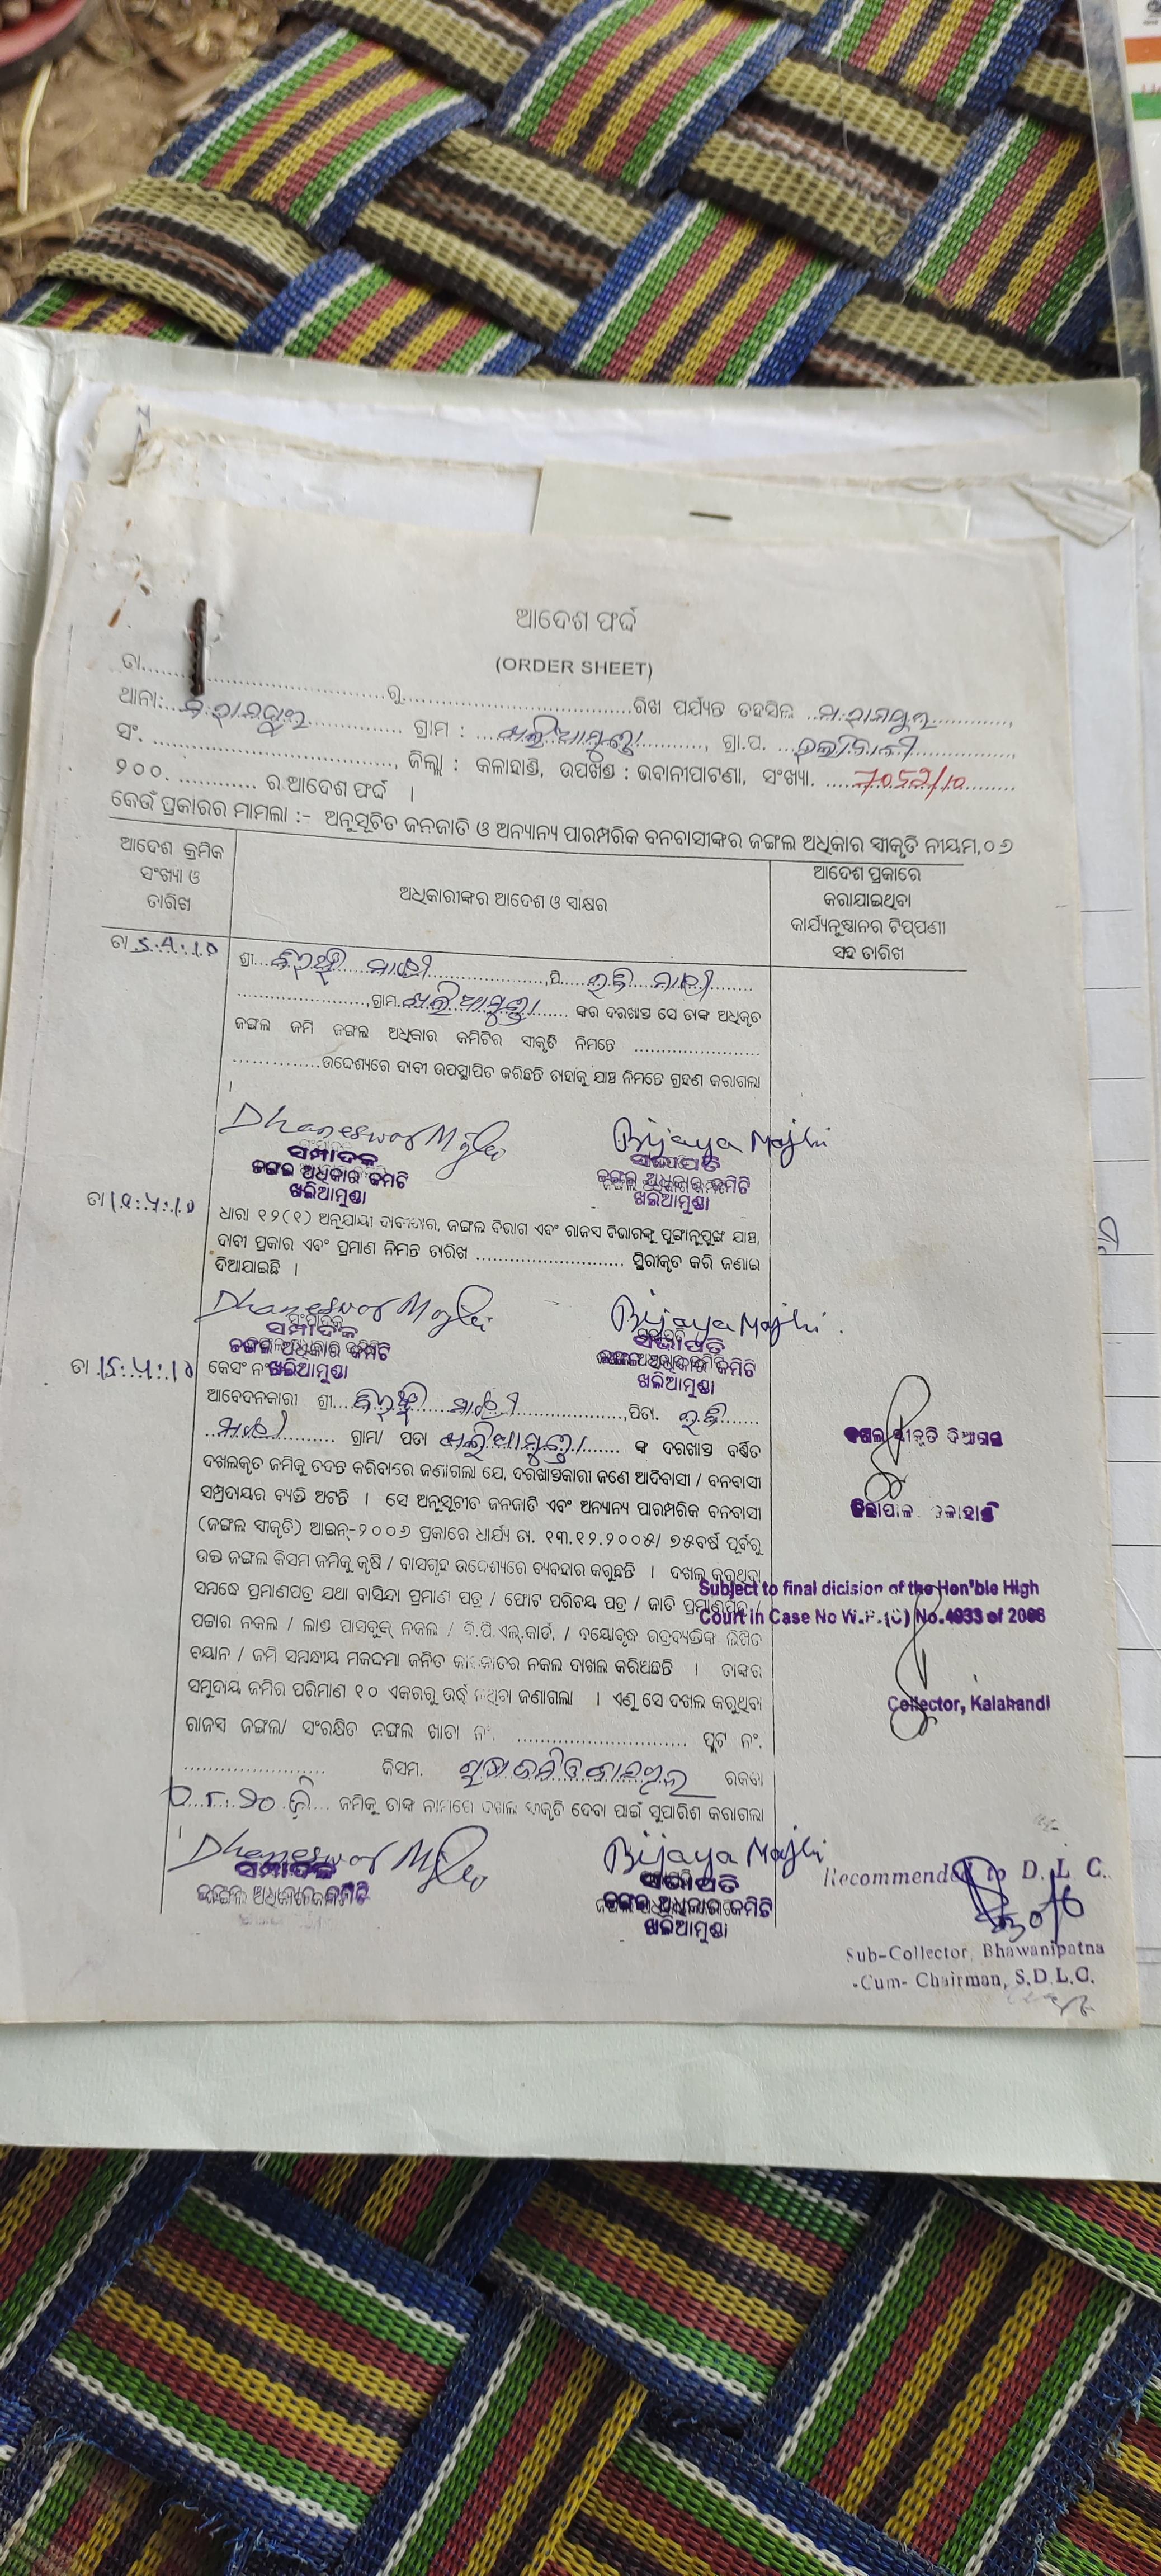 ଆଦେଶ ଫର୍ଦ୍ଦ
(ORDER SHEET)
ତା..............................ରୁ..............................ରିଖ ପର୍ଯ୍ୟନ୍ତ ତହସିଲ ମ.ରାମପୁର
ଥାନା: ମ.ରାମପୁର ଗ୍ରାମ : ଖଲିଆମୁଣ୍ଡା, ଗ୍ରା.ପ.
ସଂ. .............................., ଜିଲ୍ଲା : କଳାହାଣ୍ଡି, ଉପଖଣ୍ଡ : ଭବାନୀପାଟଣା, ସଂଖ୍ୟା.
୨୦୦. ............ ର ଆଦେଶ ଫର୍ଦ୍ଦ ।
କେଉଁ ପ୍ରକାରର ମାମଲା :- ଅନୁସୂଚିତ ଜନଜାତି ଓ ଅନ୍ୟାନ୍ୟ ପାରମ୍ପରିକ ବନବାସୀଙ୍କର ଜଙ୍ଗଲ ଅଧିକାର ସ୍ୱୀକୃତି ନୀୟମ,୦୬
ଆଦେଶ କ୍ରମିକ
ସଂଖ୍ୟା ଓ
ତାରିଖ
ଅଧିକାରୀଙ୍କର ଆଦେଶ ଓ ସାକ୍ଷର
ଆଦେଶ ପ୍ରକାରେ
କରାଯାଇଥିବା
କାର୍ଯ୍ୟାନୁଷ୍ଠାନର ଟିପ୍ପଣୀ
ସହ ତାରିଖ
ତା 5.4.10
ଶ୍ରୀ ମାଝୀ ,ପି. ମାଝୀ
....................,ଗ୍ରାମ ଖଲିଆମୁଣ୍ଡା ଙ୍କର ଦରଖାସ୍ତ ସେ ତାଙ୍କ ଅଧିକୃତ
ଜଙ୍ଗଲ ଜମି ଜଙ୍ଗଲ ଅଧିକାର କମିଟିର ସ୍ୱୀକୃତି ନିମନ୍ତେ ....................
.............ଉଦ୍ଦେଶ୍ୟରେ ଦାବୀ ଉପସ୍ଥାପିତ କରିଛନ୍ତି ତାହାକୁ ଯାଞ୍ଚ ନିମନ୍ତେ ଗ୍ରହଣ କରାଗଲା
।
Dhaneswar Majhi Bijaya Majhi
ସମ୍ପାଦକ ସଭାପତି
ଜଙ୍ଗଲ ଅଧିକାର କମିଟି ଜଙ୍ଗଲ ଅଧିକାର କମିଟି
ଖଲିଆମୁଣ୍ଡା ଖଲିଆମୁଣ୍ଡା
ତା
ଧାରା ୧୨(୧) ଅନୁଯାୟୀ ଦାବୀଦାର, ଜଙ୍ଗଲ ବିଭାଗ ଏବଂ ରାଜସ୍ୱ ବିଭାଗକୁ ପୁଙ୍ଖାନୁପୁଙ୍ଖ ଯାଞ୍ଚ,
ଦାବୀ ପ୍ରକାର ଏବଂ ପ୍ରମାଣ ନିମନ୍ତେ ତାରିଖ ......................... ସ୍ଥିରୀକୃତ କରି ଜଣାଇ
ଦିଆଯାଇଛି ।
Dhaneswar Majhi Bijaya Majhi
ସମ୍ପାଦକ ସଭାପତି
ଜଙ୍ଗଲ ଅଧିକାର କମିଟି ଜଙ୍ଗଲ ଅଧିକାର କମିଟି
ଖଲିଆମୁଣ୍ଡା ଖଲିଆମୁଣ୍ଡା
ତା 15.4.10 କେସ୍ ନଂ
ଆବେଦନକାରୀ ଶ୍ରୀ ମାଝୀ ,ପିତା.
ମାଝୀ ଗ୍ରାମ/ ପତା ଖଲିଆମୁଣ୍ଡା ଙ୍କ ଦରଖାସ୍ତ ବର୍ଣ୍ଣିତ
ଦଖଲକୃତ ଜମିକୁ ତଦନ୍ତ କରିବାରେ ଜଣାଗଲା ଯେ, ଦରଖାସ୍ତକାରୀ ଜଣେ ଆଦିବାସୀ / ବନବାସୀ
ସମ୍ପ୍ରଦାୟର ବ୍ୟକ୍ତି ଅଟନ୍ତି । ସେ ଅନୁସୂଚୀତ ଜନଜାତି ଏବଂ ଅନ୍ୟାନ୍ୟ ପାରମ୍ପରିକ ବନବାସୀ
(ଜଙ୍ଗଲ ସ୍ୱୀକୃତି) ଆଇନ୍-୨୦୦୬ ପ୍ରକାରେ ଧାର୍ଯ୍ୟ ତା. ୧୩.୧୨.୨୦୦୫/ ୭୫ବର୍ଷ ପୂର୍ବରୁ
ଉକ୍ତ ଜଙ୍ଗଲ କିସମ ଜମିକୁ କୃଷି / ବାସଗୃହ ଉଦ୍ଦେଶ୍ୟରେ ବ୍ୟବହାର କରୁଛନ୍ତି । ଦଖଲ କରୁଥିବା
ସମ୍ବନ୍ଧେ ପ୍ରମାଣପତ୍ର ଯଥା ବାସିନ୍ଦା ପ୍ରମାଣ ପତ୍ର / ଫୋଟ ପରିଚୟ ପତ୍ର / ଜାତି ପ୍ରମାଣପତ୍ର /
ପଟ୍ଟାର ନକଲ / ଲାଣ୍ଡ ପାସବୁକ୍ ନକଲ / ବି.ପି.ଏଲ୍.କାର୍ଡ, / ବୟୋବୃଦ୍ଧ ଭଦ୍ରବ୍ୟକ୍ତିଙ୍କ ଲିଖିତ
ବୟାନ / ଜମି ସମ୍ବନ୍ଧୀୟ ମକଦ୍ଦମା ଜନିତ କାଗଜାତର ନକଲ ଦାଖଲ କରିଅଛନ୍ତି । ତାଙ୍କର
ସମୁଦାୟ ଜମିର ପରିମାଣ ୧୦ ଏକରରୁ ଉର୍ଦ୍ଧ୍ୱ ନଥିବା ଜଣାଗଲା । ଏଣୁ ସେ ଦଖଲ କରୁଥିବା
ରାଜସ୍ୱ ଜଙ୍ଗଲ/ ସଂରକ୍ଷିତ ଜଙ୍ଗଲ ଖାତା ନଂ ......................... ପ୍ଲଟ ନଂ.
..................... କିସମ. ରକବା
ଜମିକୁ ତାଙ୍କ ନାମରେ ଦଖଲ ସ୍ୱୀକୃତି ଦେବା ପାଇଁ ସୁପାରିଶ କରାଗଲା
।
Dhaneswar Majhi Bijaya Majhi
ସମ୍ପାଦକ ସଭାପତି
ଜଙ୍ଗଲ ଅଧିକାର କମିଟି ଜଙ୍ଗଲ ଅଧିକାର କମିଟି
ଖଲିଆମୁଣ୍ଡା
ଦଖଲ ସ୍ୱୀକୃତି ଦିଆଗଲା
ଜିଲ୍ଲାପାଳ କଳାହାଣ୍ଡି
Subject to final dicision of the Hon'ble High
Court in Case No W.P.(C) No.4933 of 2008
Collector, Kalahandi
Recommended to D.L.C.
Sub-Collector, Bhawanipatna
-Cum- Chairman, S.D.L.C.